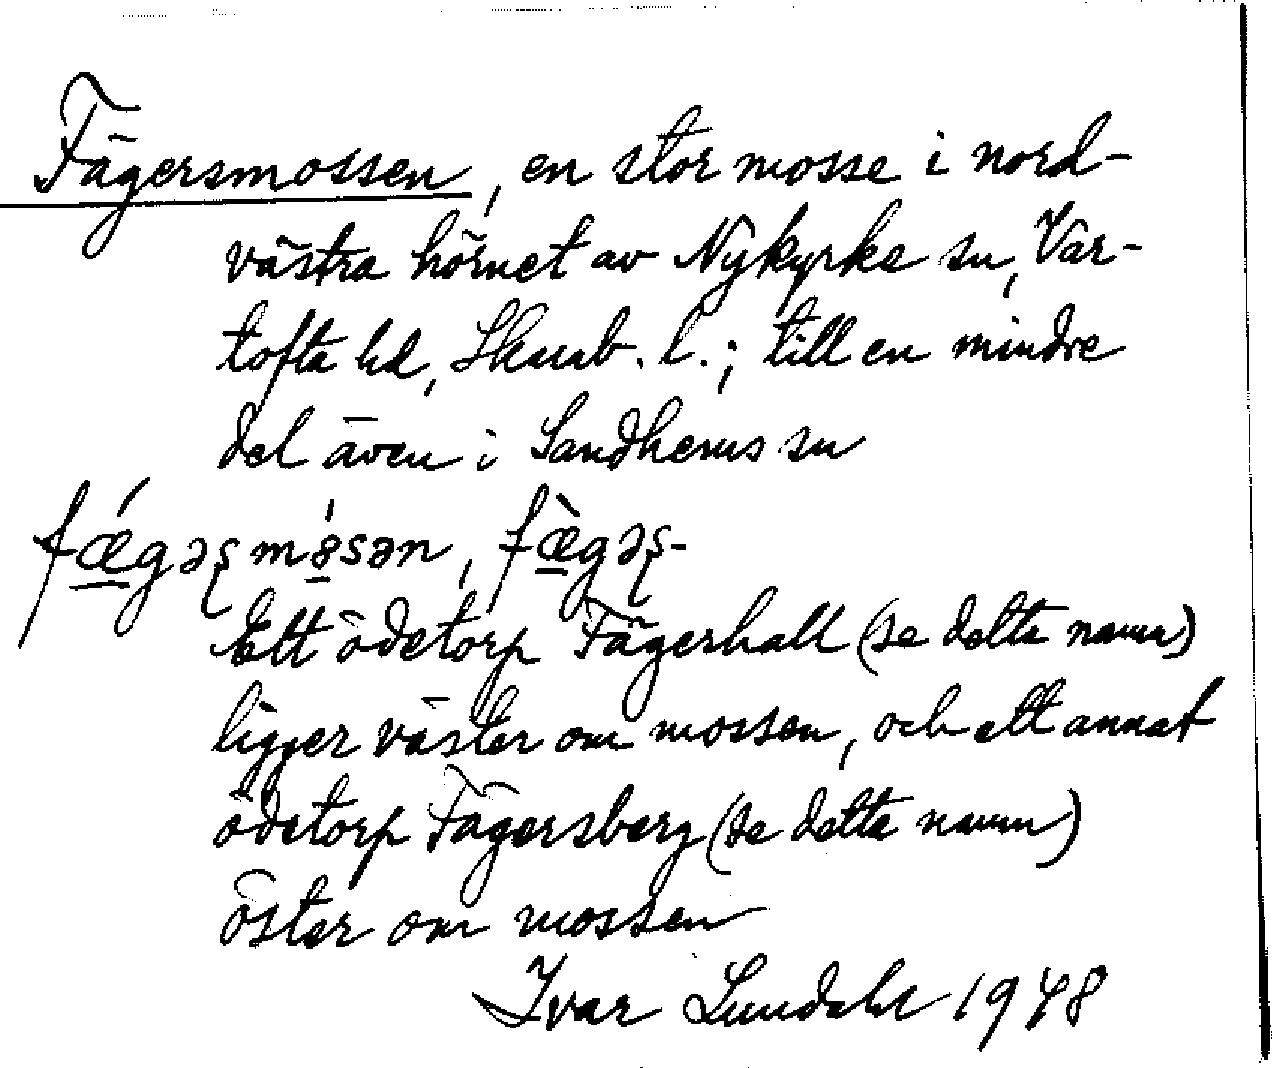 Fägersmossen, en stor mosse i nord-
västra hörnet av Nykyrke sn, Var-
tofta hd, Skarab. l.; till en mindre
del även i Sandhems sn
fǽgəʂmòsən, fæ̀gəʂ-
Ett ödetorp Fägerhall (se detta namn)
ligger väster om mossen, och ett annat
ödetorp Fägersberg (se detta namn)
öster om mossen
Ivar Lundahl 1948